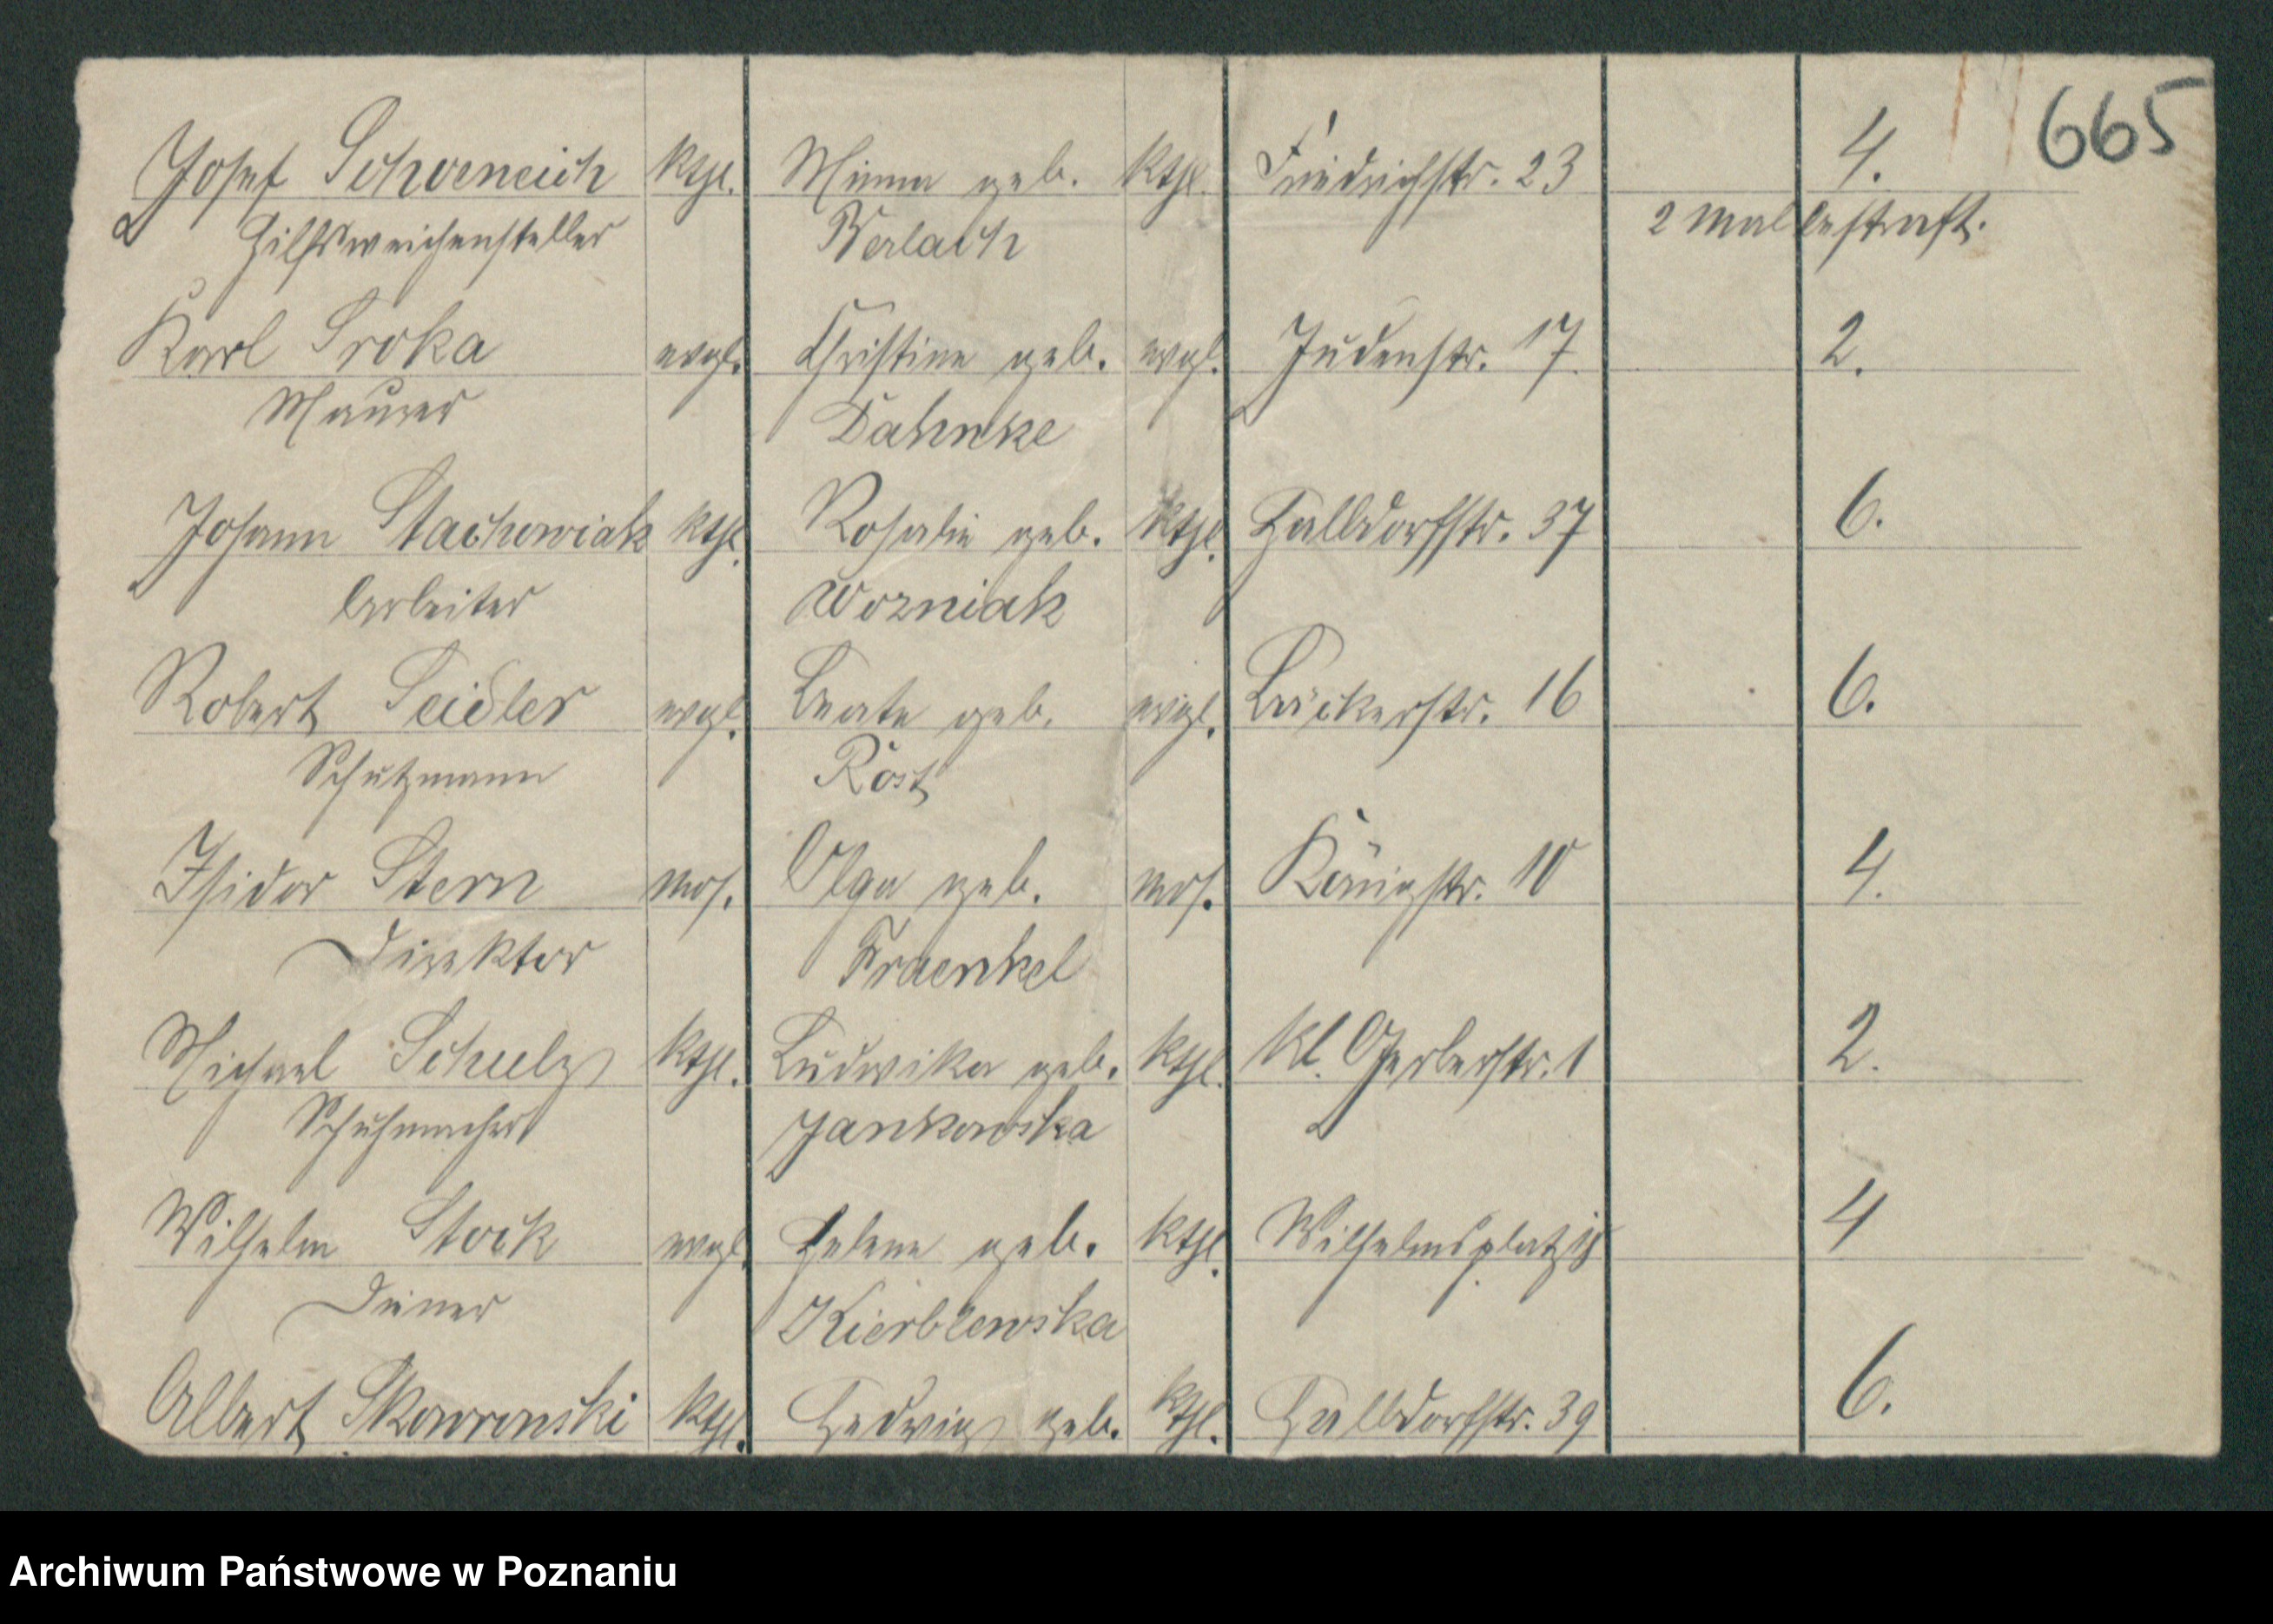 665
Josef Schoeneich kthl. Minna geb. kthl. Friedrichstr. 23 4.
Hilfsweichensteller Verlach 2 mal bestraft.
Karl Sroka evgl. Christine geb. evgl. Judenstr. 17 2.
Maurer Dahnke
Johann Stachowiak kthl. Rosalie geb. kthl. Halbdorfstr. 37 6.
Arbeiter Wozniak
Robert Seidler evgl. Beate geb. evgl. Bäckerstr. 16 6.
Schutzmann Rost
Isidor Stern mos. Olga geb. mos. Königstr. 10 4.
Direktor Fraenkel
Michael Schulz kthl. Ludwika geb. kthl. Kl. Gerberstr. 1 2.
Schuhmacher Jankowska
Wilhelm Stock evgl. Helene geb. kthl. Wilhelmsplatz 4
Diener Kierblewska
Albert Skowronski kthl. Hedwig geb. kthl. Halbdorfstr. 39 6.
Archiwum Państwowe w Poznaniu